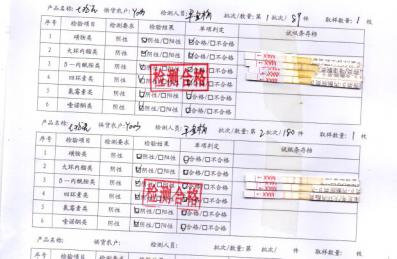 产品名称: 供货农户: Y003 检测人员: 批次/数量: 第 1 批次/ 89 件 取样数量: 1 枚
序号 检验项目 检测要求 检验结果 单项判定 试纸条存档
1 磺胺类 阴性 ☑阴性/□阳性 ☑合格/□不合格
2 大环内酯类 阴性 ☑阴性/□阳性 ☑合格/□不合格
3 β-内酰胺类 阴性 ☑阴性/□阳性 ☑合格/□不合格
4 四环素类 阴性 ☑阴性/□阳性 ☑合格/□不合格
5 氯霉素类 阴性 ☑阴性/□阳性 ☑合格/□不合格
6 喹诺酮类 阴性 ☑阴性/□阳性 ☑合格/□不合格
检测合格
MAX
产品名称: 供货农户: Y003 检测人员: 批次/数量: 第 2 批次/ 180 件 取样数量: 1 枚
序号 检验项目 检测要求 检验结果 单项判定 试纸条存档
1 磺胺类 阴性 ☑阴性/□阳性 ☑合格/□不合格
2 大环内酯类 阴性 ☑阴性/□阳性 ☑合格/□不合格
3 β-内酰胺类 阴性 ☑阴性/□阳性 ☑合格/□不合格
4 四环素类 阴性 ☑阴性/□阳性 ☑合格/□不合格
5 氯霉素类 阴性 ☑阴性/□阳性 ☑合格/□不合格
6 喹诺酮类 阴性 ☑阴性/□阳性 ☑合格/□不合格
检测合格
MAX
产品名称: 供货农户: 检测人员: 批次/数量: 第 批次/ 件 取样数量: 枚